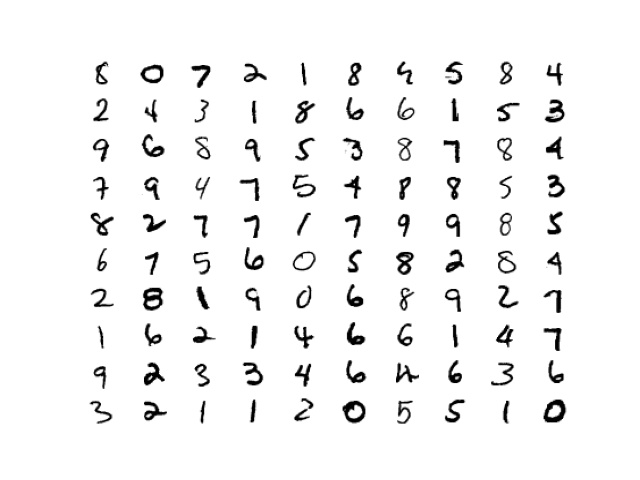 8 0 7 2 1 8 4 5 8 4
2 4 3 1 8 6 6 1 5 3
9 6 8 9 5 3 8 7 8 4
7 9 4 7 5 4 8 8 5 3
8 2 7 7 1 7 9 9 8 5
6 7 5 6 0 5 8 2 8 4
2 8 1 9 0 6 8 9 2 7
1 6 2 1 4 6 6 1 4 7
9 2 3 3 4 6 4 6 3 6
3 2 1 1 2 0 5 5 1 0